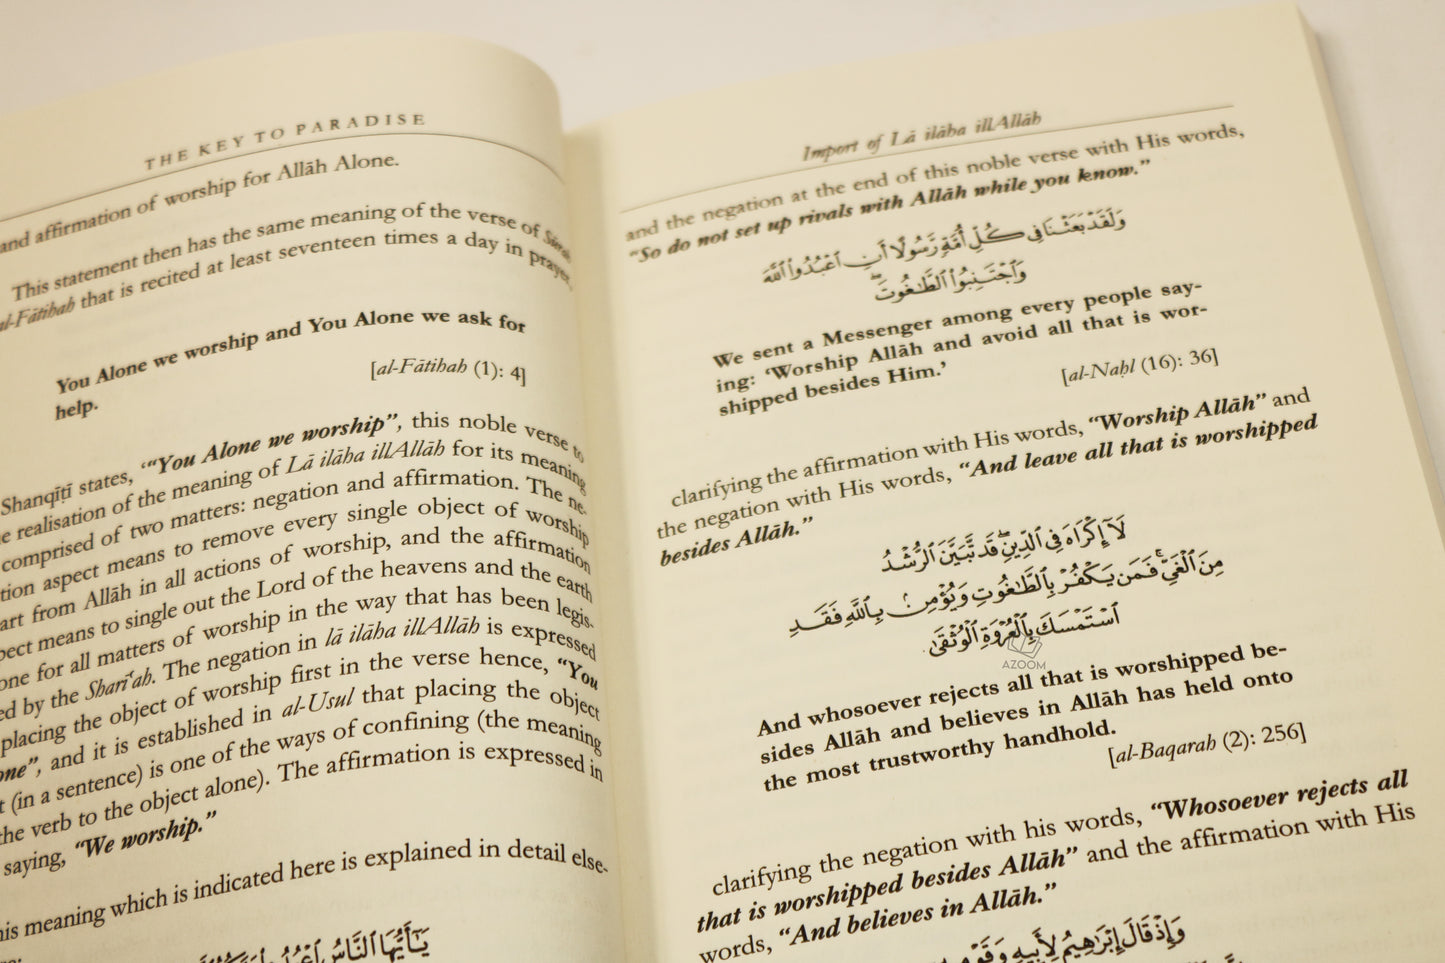 THE KEY TO PARADISE
and affirmation of worship for Allāh Alone.
This statement then has the same meaning of the verse of Sūrah
al-Fātiḥah that is recited at least seventeen times a day in prayer,
You Alone we worship and You Alone we ask for
help.
[al-Fātiḥah (1): 4]
Shanqīṭī states, ‘“You Alone we worship”, this noble verse to
realisation of the meaning of Lā ilāha illAllāh for its meaning
comprised of two matters: negation and affirmation. The ne-
tion aspect means to remove every single object of worship
art from Allāh in all actions of worship, and the affirmation
pect means to single out the Lord of the heavens and the earth
one for all matters of worship in the way that has been legis-
ed by the Sharī‘ah. The negation in lā ilāha illAllāh is expressed
placing the object of worship first in the verse hence, “You
one”, and it is established in al-Usul that placing the object
t (in a sentence) is one of the ways of confining (the meaning
the verb to the object alone). The affirmation is expressed in
saying, “We worship.”
his meaning which is indicated here is explained in detail else-
يَٰٓأَيُّهَا ٱلنَّاسُ ٱعْبُدُوا۟ رَبَّكُمُ
Import of Lā ilāha illAllāh
and the negation at the end of this noble verse with His words,
“So do not set up rivals with Allāh while you know.”
وَلَقَدْ بَعَثْنَا فِى كُلِّ أُمَّةٍ رَّسُولًا أَنِ ٱعْبُدُوا۟ ٱللَّهَ
وَٱجْتَنِبُوا۟ ٱلطَّٰغُوتَ ۖ
We sent a Messenger among every people say-
ing: ‘Worship Allāh and avoid all that is wor-
shipped besides Him.’
[al-Naḥl (16): 36]
clarifying the affirmation with His words, “Worship Allāh” and
the negation with His words, “And leave all that is worshipped
besides Allāh.”
لَآ إِكْرَاهَ فِى ٱلدِّينِ ۖ قَد تَّبَيَّنَ ٱلرُّشْدُ
مِنَ ٱلْغَىِّ ۚ فَمَن يَكْفُرْ بِٱلطَّٰغُوتِ وَيُؤْمِنۢ بِٱللَّهِ فَقَدِ
ٱسْتَمْسَكَ بِٱلْعُرْوَةِ ٱلْوُثْقَىٰ
AZOOM
And whosoever rejects all that is worshipped be-
sides Allāh and believes in Allāh has held onto
the most trustworthy handhold.
[al-Baqarah (2): 256]
clarifying the negation with his words, “Whosoever rejects all
that is worshipped besides Allāh” and the affirmation with His
words, “And believes in Allāh.”
وَإِذْ قَالَ إِبْرَٰهِيمُ لِأَبِيهِ وَقَوْمِهِۦٓ